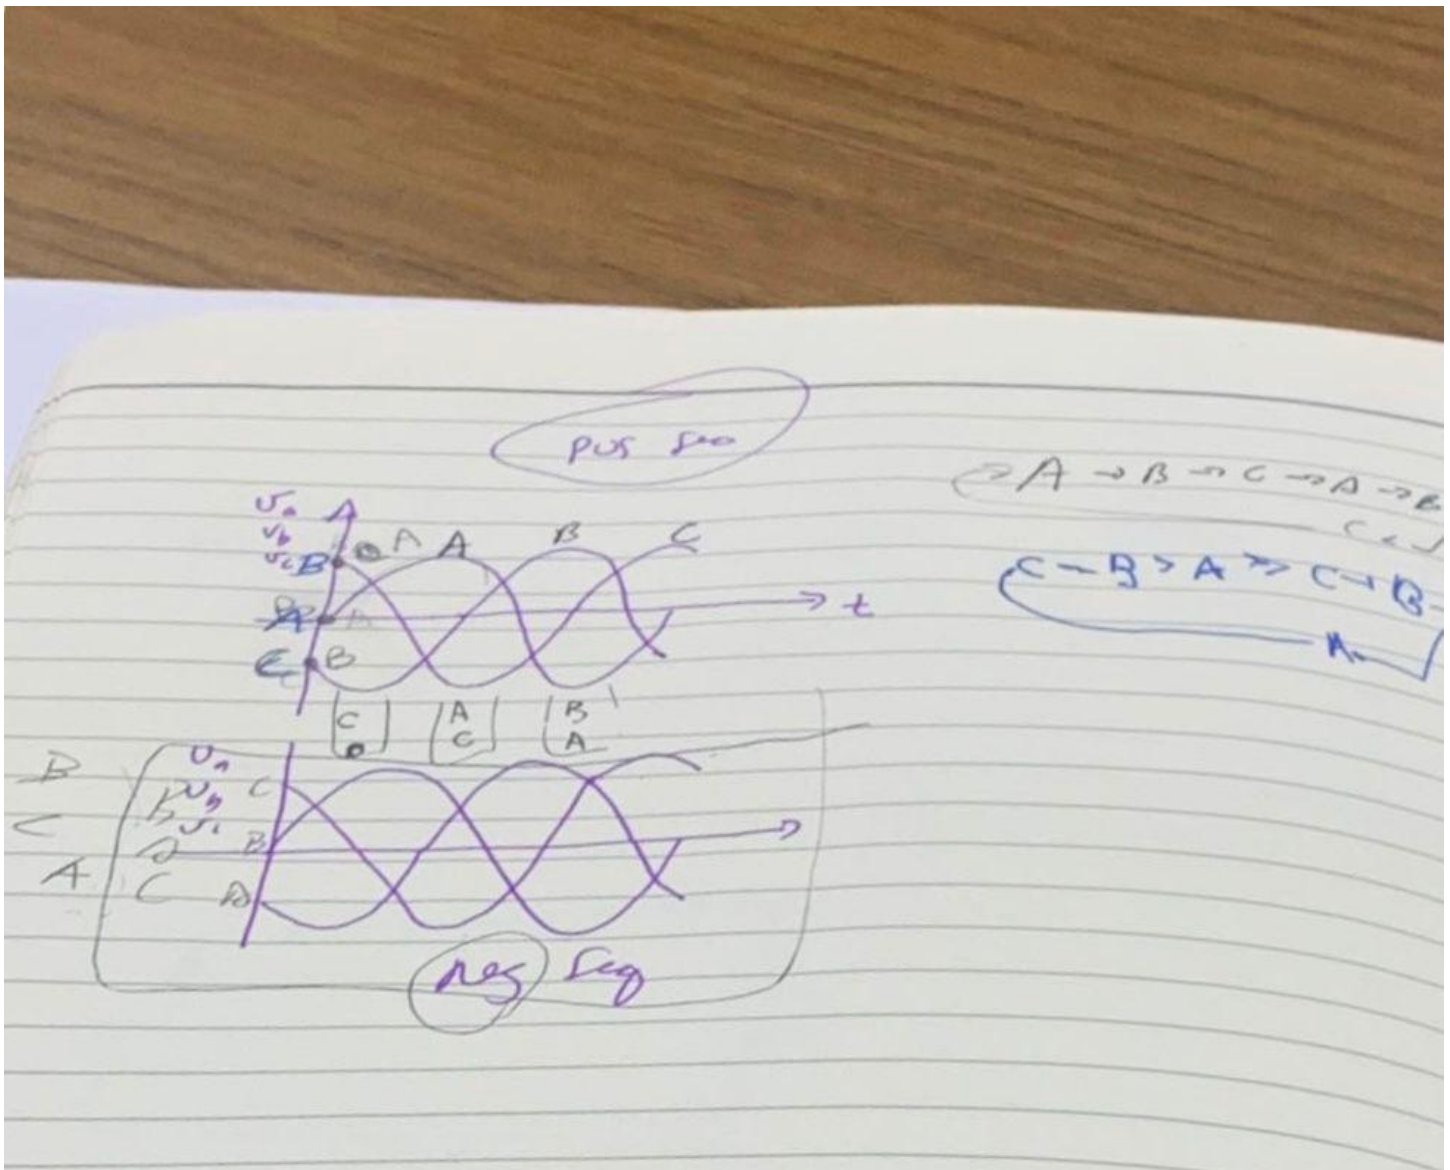 pos seq
A → B → C → A → B
C
C → B > A >> C → B
A
Va A
Vb
Vc B A A B C
A A
C B
t
C A B
C A
Va
B Vb C
Vc
C B
A C A
neg seq